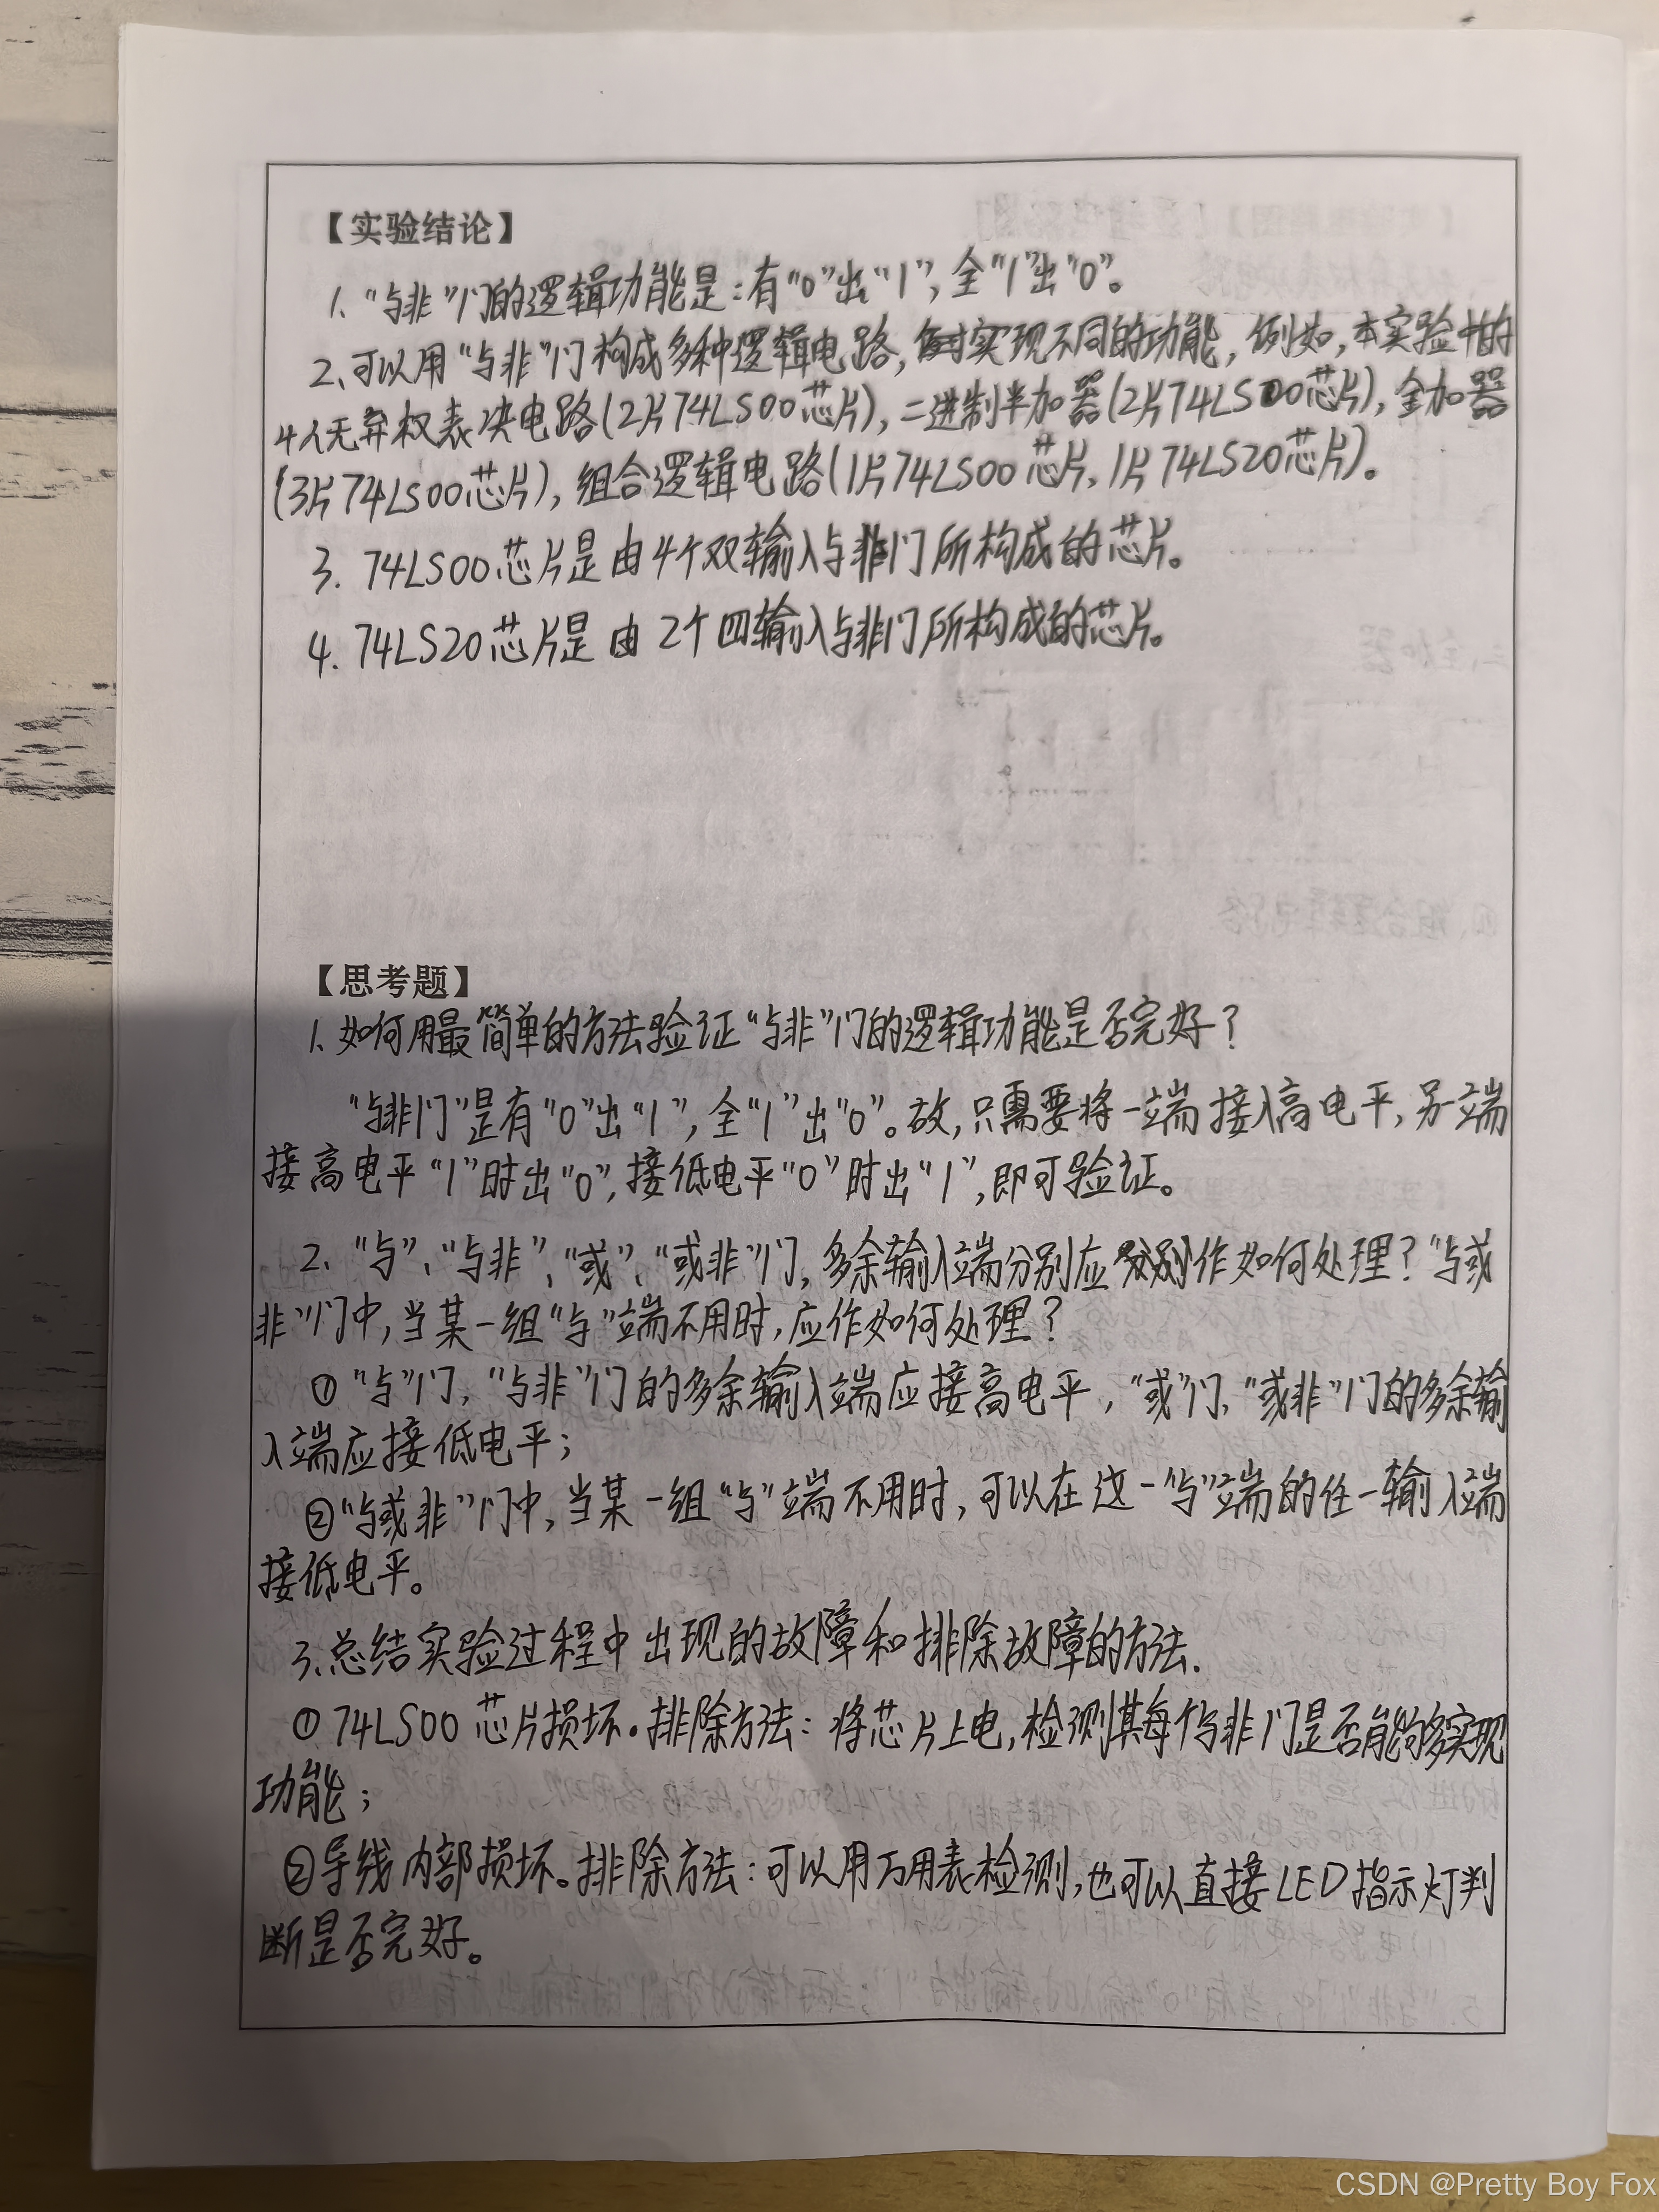 【实验结论】
1、“与非”门的逻辑功能是：有“0”出“1”，全“1”出“0”。
2、可以用“与非”门构成多种逻辑电路，实现不同的功能，例如，本实验中的
4人无弃权表决电路（2片74LS00芯片），二进制半加器（2片74LS00芯片），全加器
（3片74LS00芯片），组合逻辑电路（1片74LS00芯片，1片74LS20芯片）。
3. 74LS00芯片是由4个双输入与非门所构成的芯片。
4. 74LS20芯片是由2个四输入与非门所构成的芯片。
【思考题】
1、如何用最简单的方法验证“与非”门的逻辑功能是否完好？
“与非门”是有“0”出“1”，全“1”出“0”。故，只需要将一端接入高电平，另一端
接高电平“1”时出“0”，接低电平“0”时出“1”，即可验证。
2、“与”、“与非”、“或”、“或非”门，多余输入端分别应作如何处理？“与或
非”门中，当某一组“与”端不用时，应作如何处理？
①“与”门，“与非”门的多余输入端应接高电平，“或”门、“或非”门的多余输
入端应接低电平；
②“与或非”门中，当某一组“与”端不用时，可以在这一“与”端的任一输入端
接低电平。
3、总结实验过程中出现的故障和排除故障的方法.
①74LS00芯片损坏。排除方法：将芯片上电，检测其每个与非门是否能够实现
功能；
②导线内部损坏。排除方法：可以用万用表检测，也可以直接LED指示灯判
断是否完好。
CSDN @Pretty Boy Fox